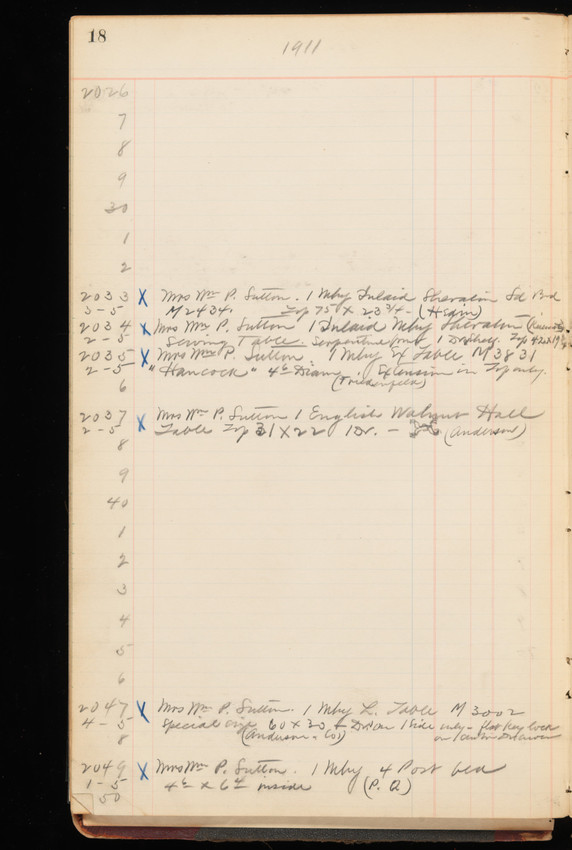 18
1911
2026
7
8
9
30
1
2
2033 X Mrs Wm P. Sutton. 1 Mhy Inlaid Sheraton Sd Bd
3-5 M2434. Top 75 X 23 3/4 -
2034 X Mrs Wm P. Sutton 1 Inlaid Mhy Sheraton
2-5 Serving Table. Serpentine front 1 Top 42x19
2035 X Mrs Wm P. Sutton 1 Mhy Ex Table M3831
2-5 "Hancock" 4 6 Diam. Extension in Top only.
6
2037 X Mrs Wm P. Sutton 1 English Walnut Hall
2-5 Table Top 31X22 1 Dr. - (Anderson)
8
9
40
1
2
3
4
5
6
2047 X Mrs Wm P. Sutton. 1 Mhy L. Table M3002
4-5 Special size 60 X 30 1 side only - flat key lock
8 (Anderson & Co)
2049 X Mrs Wm P. Sutton. 1 Mhy 4 Post bed
1-5 4 6 X 6 4 inside (P. Q)
50